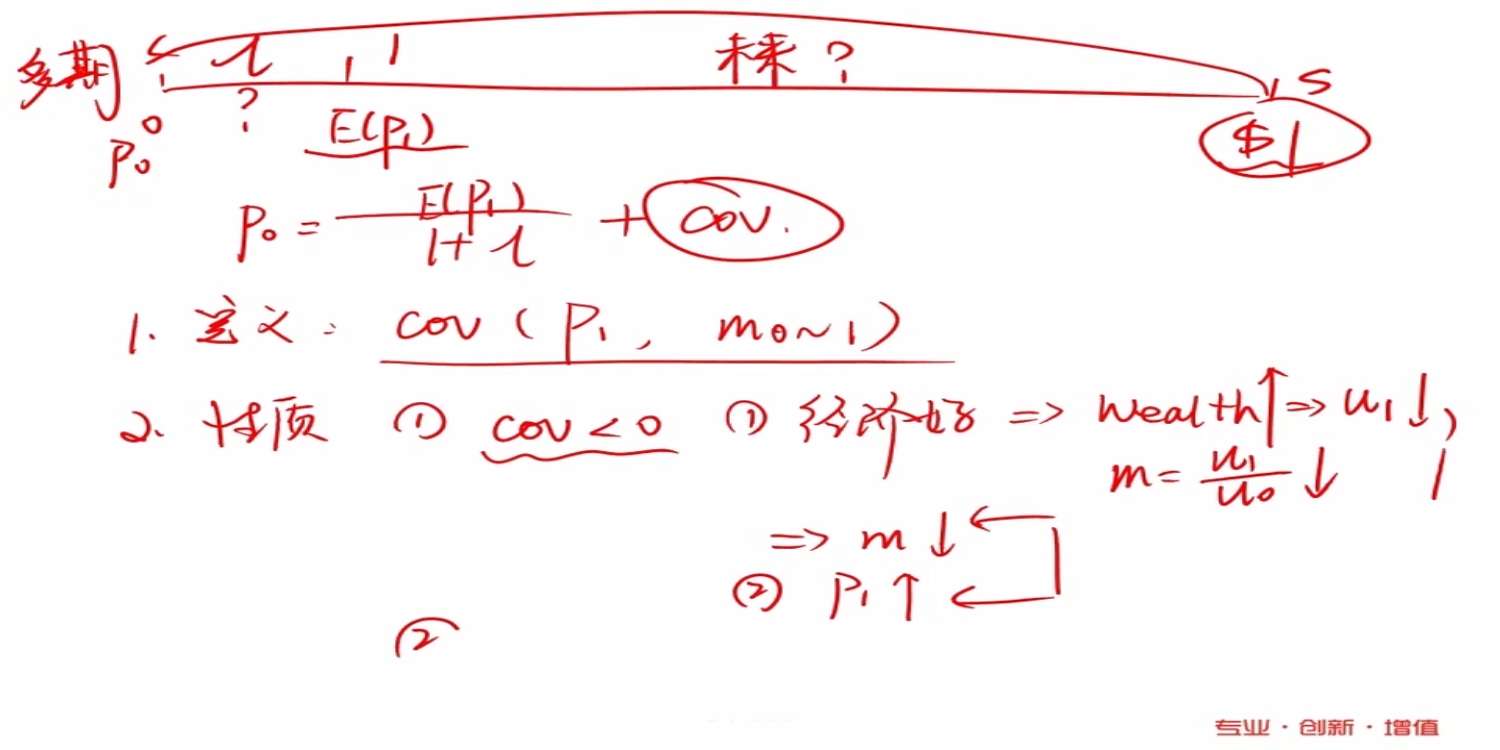 多期 l 1 未来? s
0 ? E(P₁) $1
P₀
P₀ = E(P₁) / 1+l + cov.
1. 定义: cov(P₁, m₀~₁)
2. 性质 ① cov<0 ① 经济好 => wealth↑ => u₁↓,
m = u₁/u₀ ↓
=> m↓
② P₁↑
②
专业·创新·增值